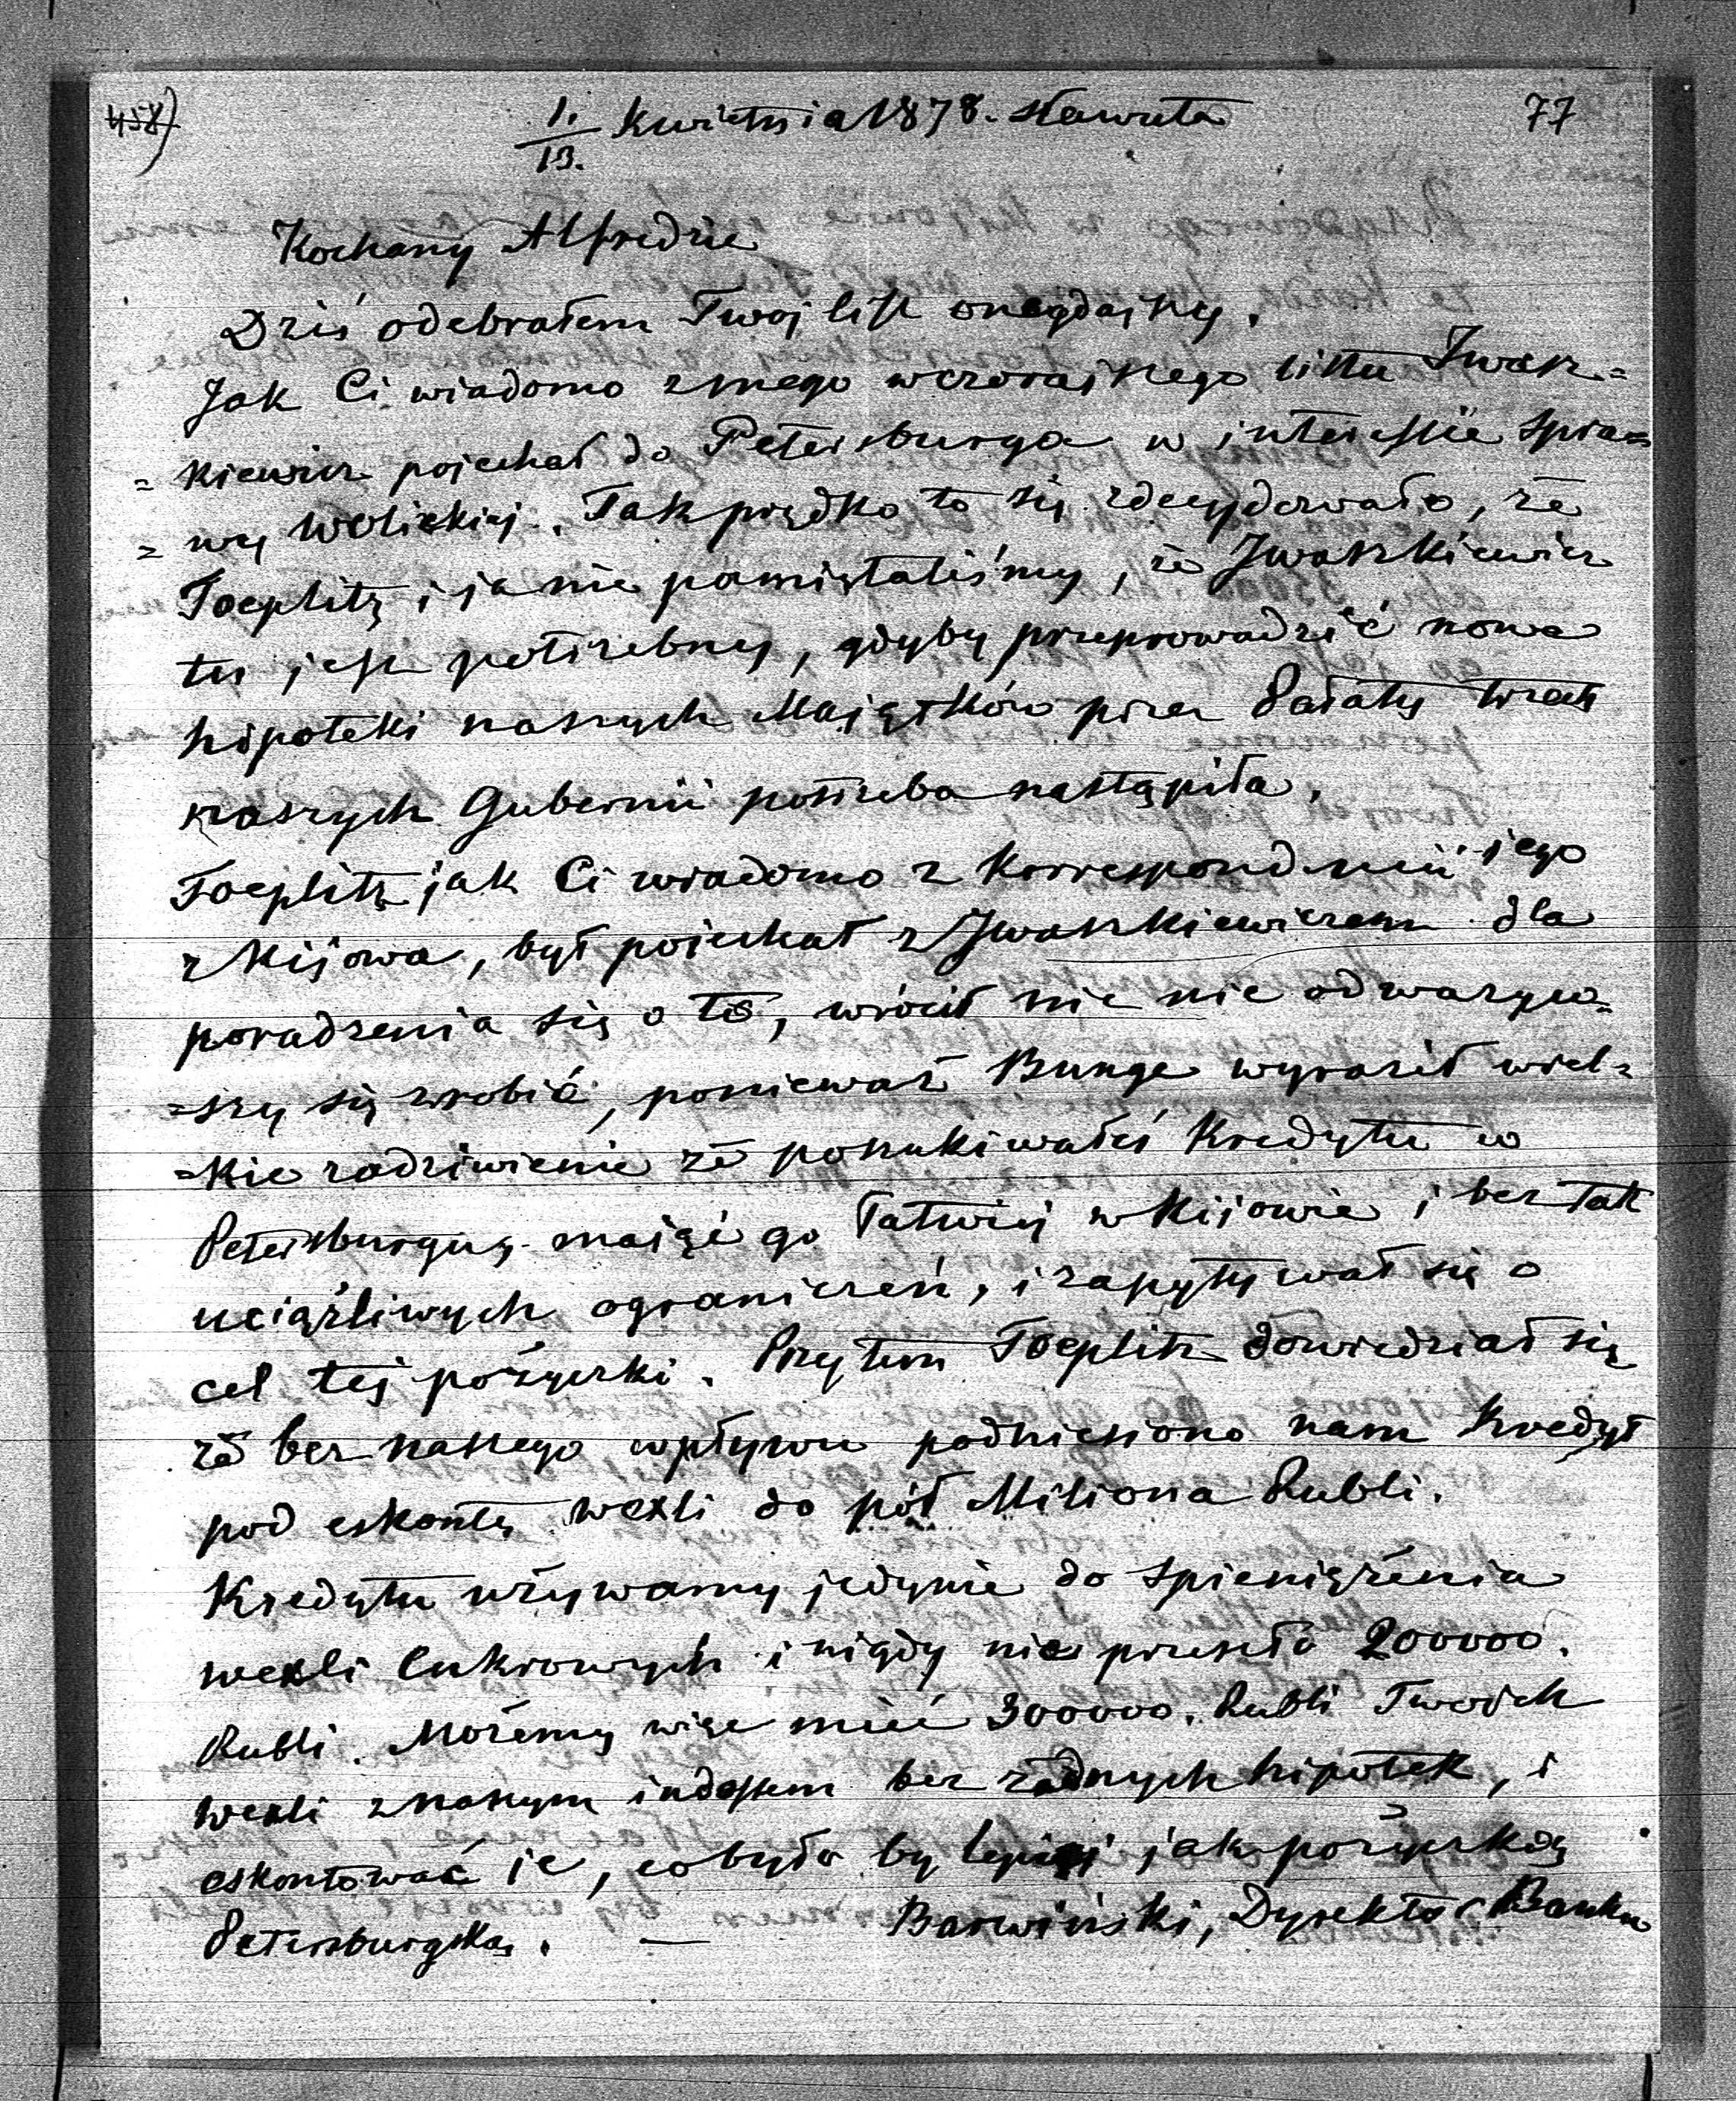 458) 1./13. Kwietnia 1878. Sławuta 77
Kochany Alfredzie
Dziś odebrałem Twoj list onegdajszy.
Jak Ci wiadomo z mego wczorajszego listu Iwasz=
=kiewicz pojechał do Petersburga w interessie spra=
=wy Wolickiej. Tak prędko to się zdecydowało, że
Toeplitz i ja nie pamiętaliśmy, że Iwaszkiewicz
tu jest potrzebny, gdyby przeprowadzić nowe
hipoteki naszych Majątków przez Pałaty trzech
naszych Gubernii potrzeba nastąpiła.
Toeplitz jak Ci wiadomo z Korrespondencii jego
z Kijowa, był pojechał z Iwaszkiewiczem dla
poradzenia się o to, wrócił nic nie odważyw=
=szy się zrobić, ponieważ Bunge wyraził wiel=
=kie zadziwienie że poszukiwałeś Kredytu w
Petersburgu, mając go łatwiej w Kijowie i bez tak
uciążliwych ograniczeń, i zapytywał się o
cel tej pożyczki. Przytem Toeplitz dowiedział się
że bez naszego wpływu podniesiono nam Kredyt
pod eskontę wexli do pół Miliona Rubli.
Kredytu używamy jedynie do spieniężenia
wexli Cukrowych i nigdy nie przeszło 200000.
Rubli. Możemy więc mieć 300000. Rubli Twoich
wexli z naszym indossem bez żadnych hipotek, i
eskontować je, co było by lepiej jak pożyczką
Petersburgską. — Barwiński, Dyrektor Banku